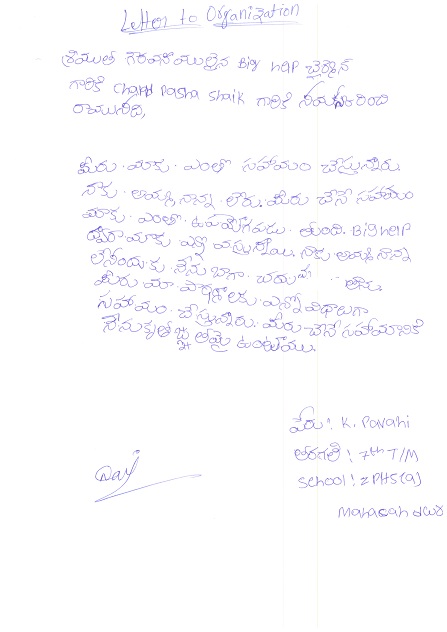 Letter to Organization
శ్రీయుత గౌరవనీయులైన Big help చైర్మెన్
గారికి Chand Pasha Shaik గారికి నమస్కరించి
రాయునది,
మీరు మాకు ఎంతో సహాయం చేస్తున్నారు.
నాకు అమ్మ నాన్న లేరు. మీరు చేసే సహాయం
మాకు ఎంతో ఉపయోగపడు తుంది. Big help
ద్వారా మాకు ఎన్నో వస్తున్నాయి. నాకు అమ్మ నాన్న
లేనందుకు నేను బాగా చదువు
మీరు మా పాఠశాలకు ఎన్నో విధాలుగా
సహాయం చేస్తున్నారు. మీరు చేసే సహాయానికి
నేను కృతజ్ఞతమై ఉంటాము.
పేరు: K. Pavani
తరగతి: 7th T/M
School: ZPHS(G)